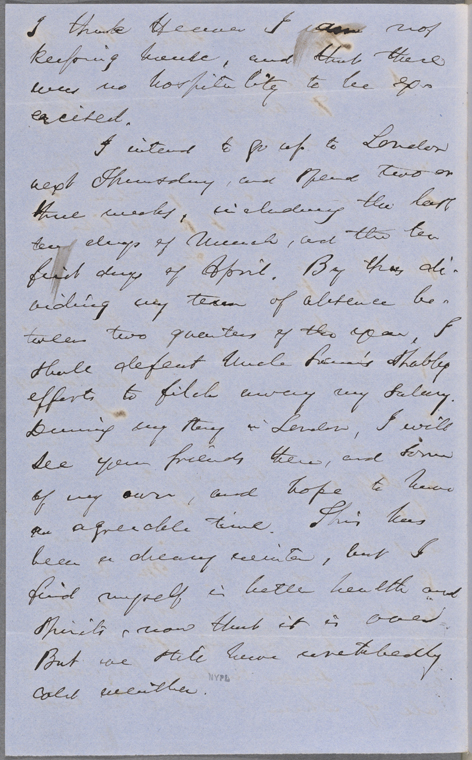 I thank Heaven I am not
keeping house, and that there
was no hospitality to be ex-
ercised.
I intend to go up to London
next Thursday, and spend two or
three weeks, including the last
ten days of March, and the ten
first days of April. By thus di-
viding my term of absence be-
tween two quarters of the year, I
shall defeat Uncle Sam's shabby
efforts to filch away my salary.
During my stay in London, I will
see your friends there, and some
of my own, and hope to have
an agreeable time. This has
been a dreary winter, but I
find myself in better health and
spirits, now that it is over.
But we still have wretchedly
cold weather.
NYPL